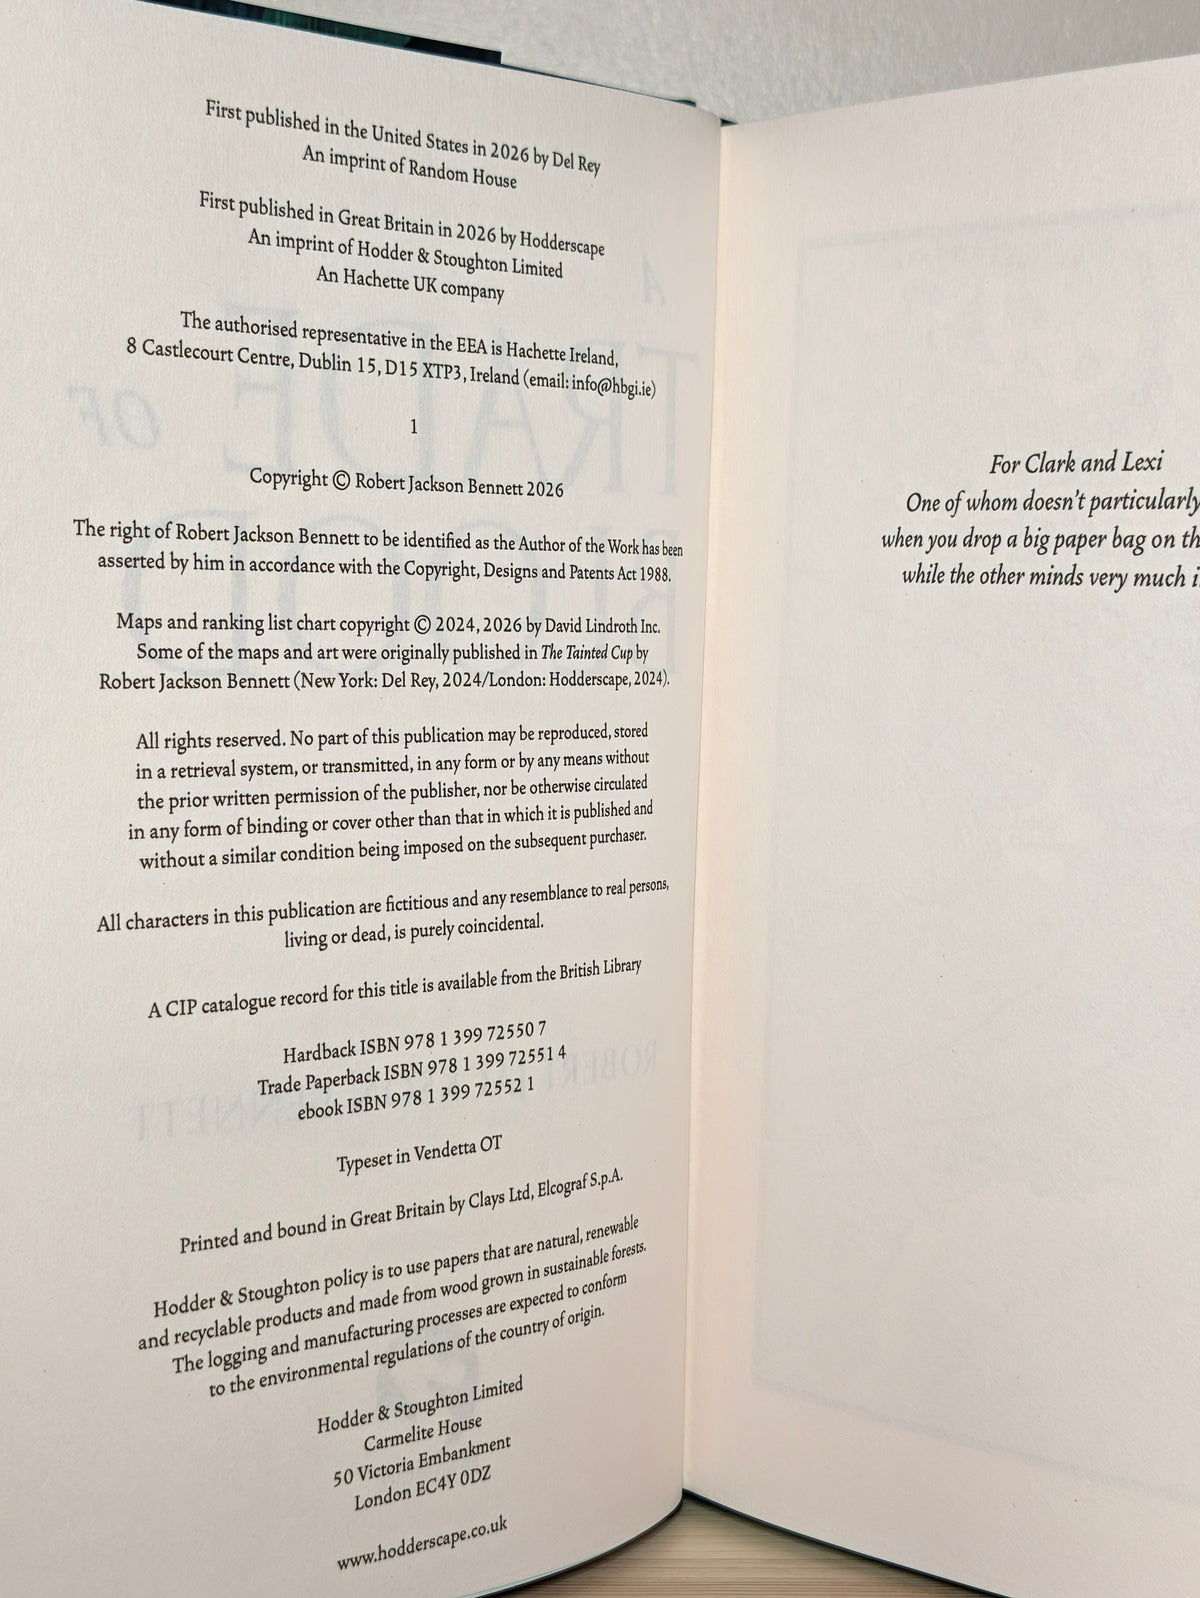 First published in the United States in 2026 by Del Rey
An imprint of Random House
First published in Great Britain in 2026 by Hodderscape
An imprint of Hodder & Stoughton Limited
An Hachette UK company
The authorised representative in the EEA is Hachette Ireland,
8 Castlecourt Centre, Dublin 15, D15 XTP3, Ireland (email: info@hbgi.ie)
1
Copyright © Robert Jackson Bennett 2026
The right of Robert Jackson Bennett to be identified as the Author of the Work has been
asserted by him in accordance with the Copyright, Designs and Patents Act 1988.
Maps and ranking list chart copyright © 2024, 2026 by David Lindroth Inc.
Some of the maps and art were originally published in The Tainted Cup by
Robert Jackson Bennett (New York: Del Rey, 2024/London: Hodderscape, 2024).
All rights reserved. No part of this publication may be reproduced, stored
in a retrieval system, or transmitted, in any form or by any means without
the prior written permission of the publisher, nor be otherwise circulated
in any form of binding or cover other than that in which it is published and
without a similar condition being imposed on the subsequent purchaser.
All characters in this publication are fictitious and any resemblance to real persons,
living or dead, is purely coincidental.
A CIP catalogue record for this title is available from the British Library
Hardback ISBN 978 1 399 72550 7
Trade Paperback ISBN 978 1 399 72551 4
ebook ISBN 978 1 399 72552 1
Typeset in Vendetta OT
Printed and bound in Great Britain by Clays Ltd, Elcograf S.p.A.
Hodder & Stoughton policy is to use papers that are natural, renewable
and recyclable products and made from wood grown in sustainable forests.
The logging and manufacturing processes are expected to conform
to the environmental regulations of the country of origin.
Hodder & Stoughton Limited
Carmelite House
50 Victoria Embankment
London EC4Y 0DZ
www.hodderscape.co.uk
For Clark and Lexi
One of whom doesn't particularly
when you drop a big paper bag on
while the other minds very much